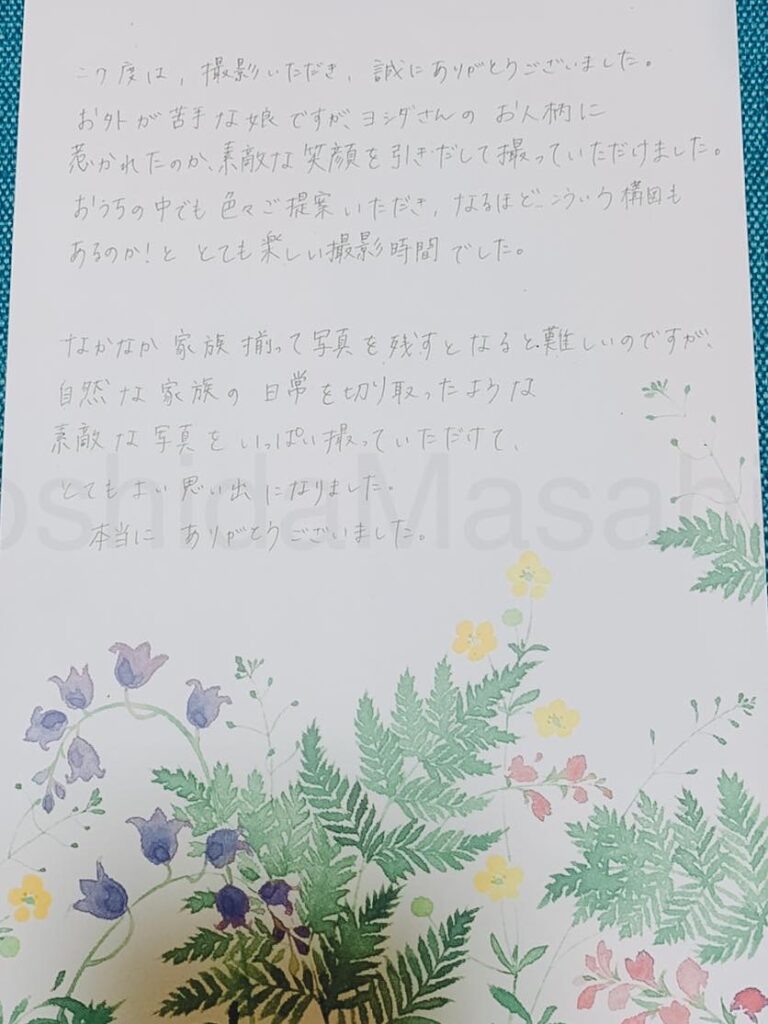 この度は，撮影いただき，誠にありがとうございました。
お外が苦手な娘ですが、ヨシダさんの お人柄に
惹かれたのか、素敵な笑顔を引きだして撮っていただけました。
おうちの中でも 色々ご提案いただき，なるほど…こういう構図も
あるのか！と とても楽しい撮影時間でした。
なかなか 家族揃って写真を残すとなると、難しいのですが、
自然な家族の 日常を切り取ったような
素敵な写真をいっぱい撮っていただけて、
とてもよい思い出になりました。
本当に ありがとうございました。
oshidaMasah